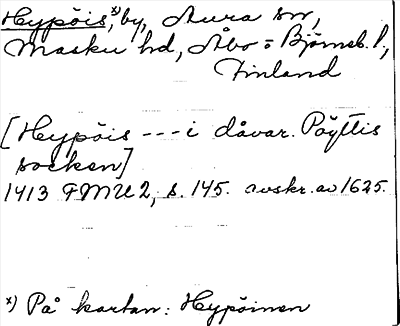 Heypöis,ˣ⁾ by, Aura sn,
Masku hd, Åbo o Björneb. l.,
Finland
[Heypöis --- i dåvar. Pöyttis
socken]
1413 FMU 2, s. 145. avskr. av 1625.
x) På kartan: Heypöinen